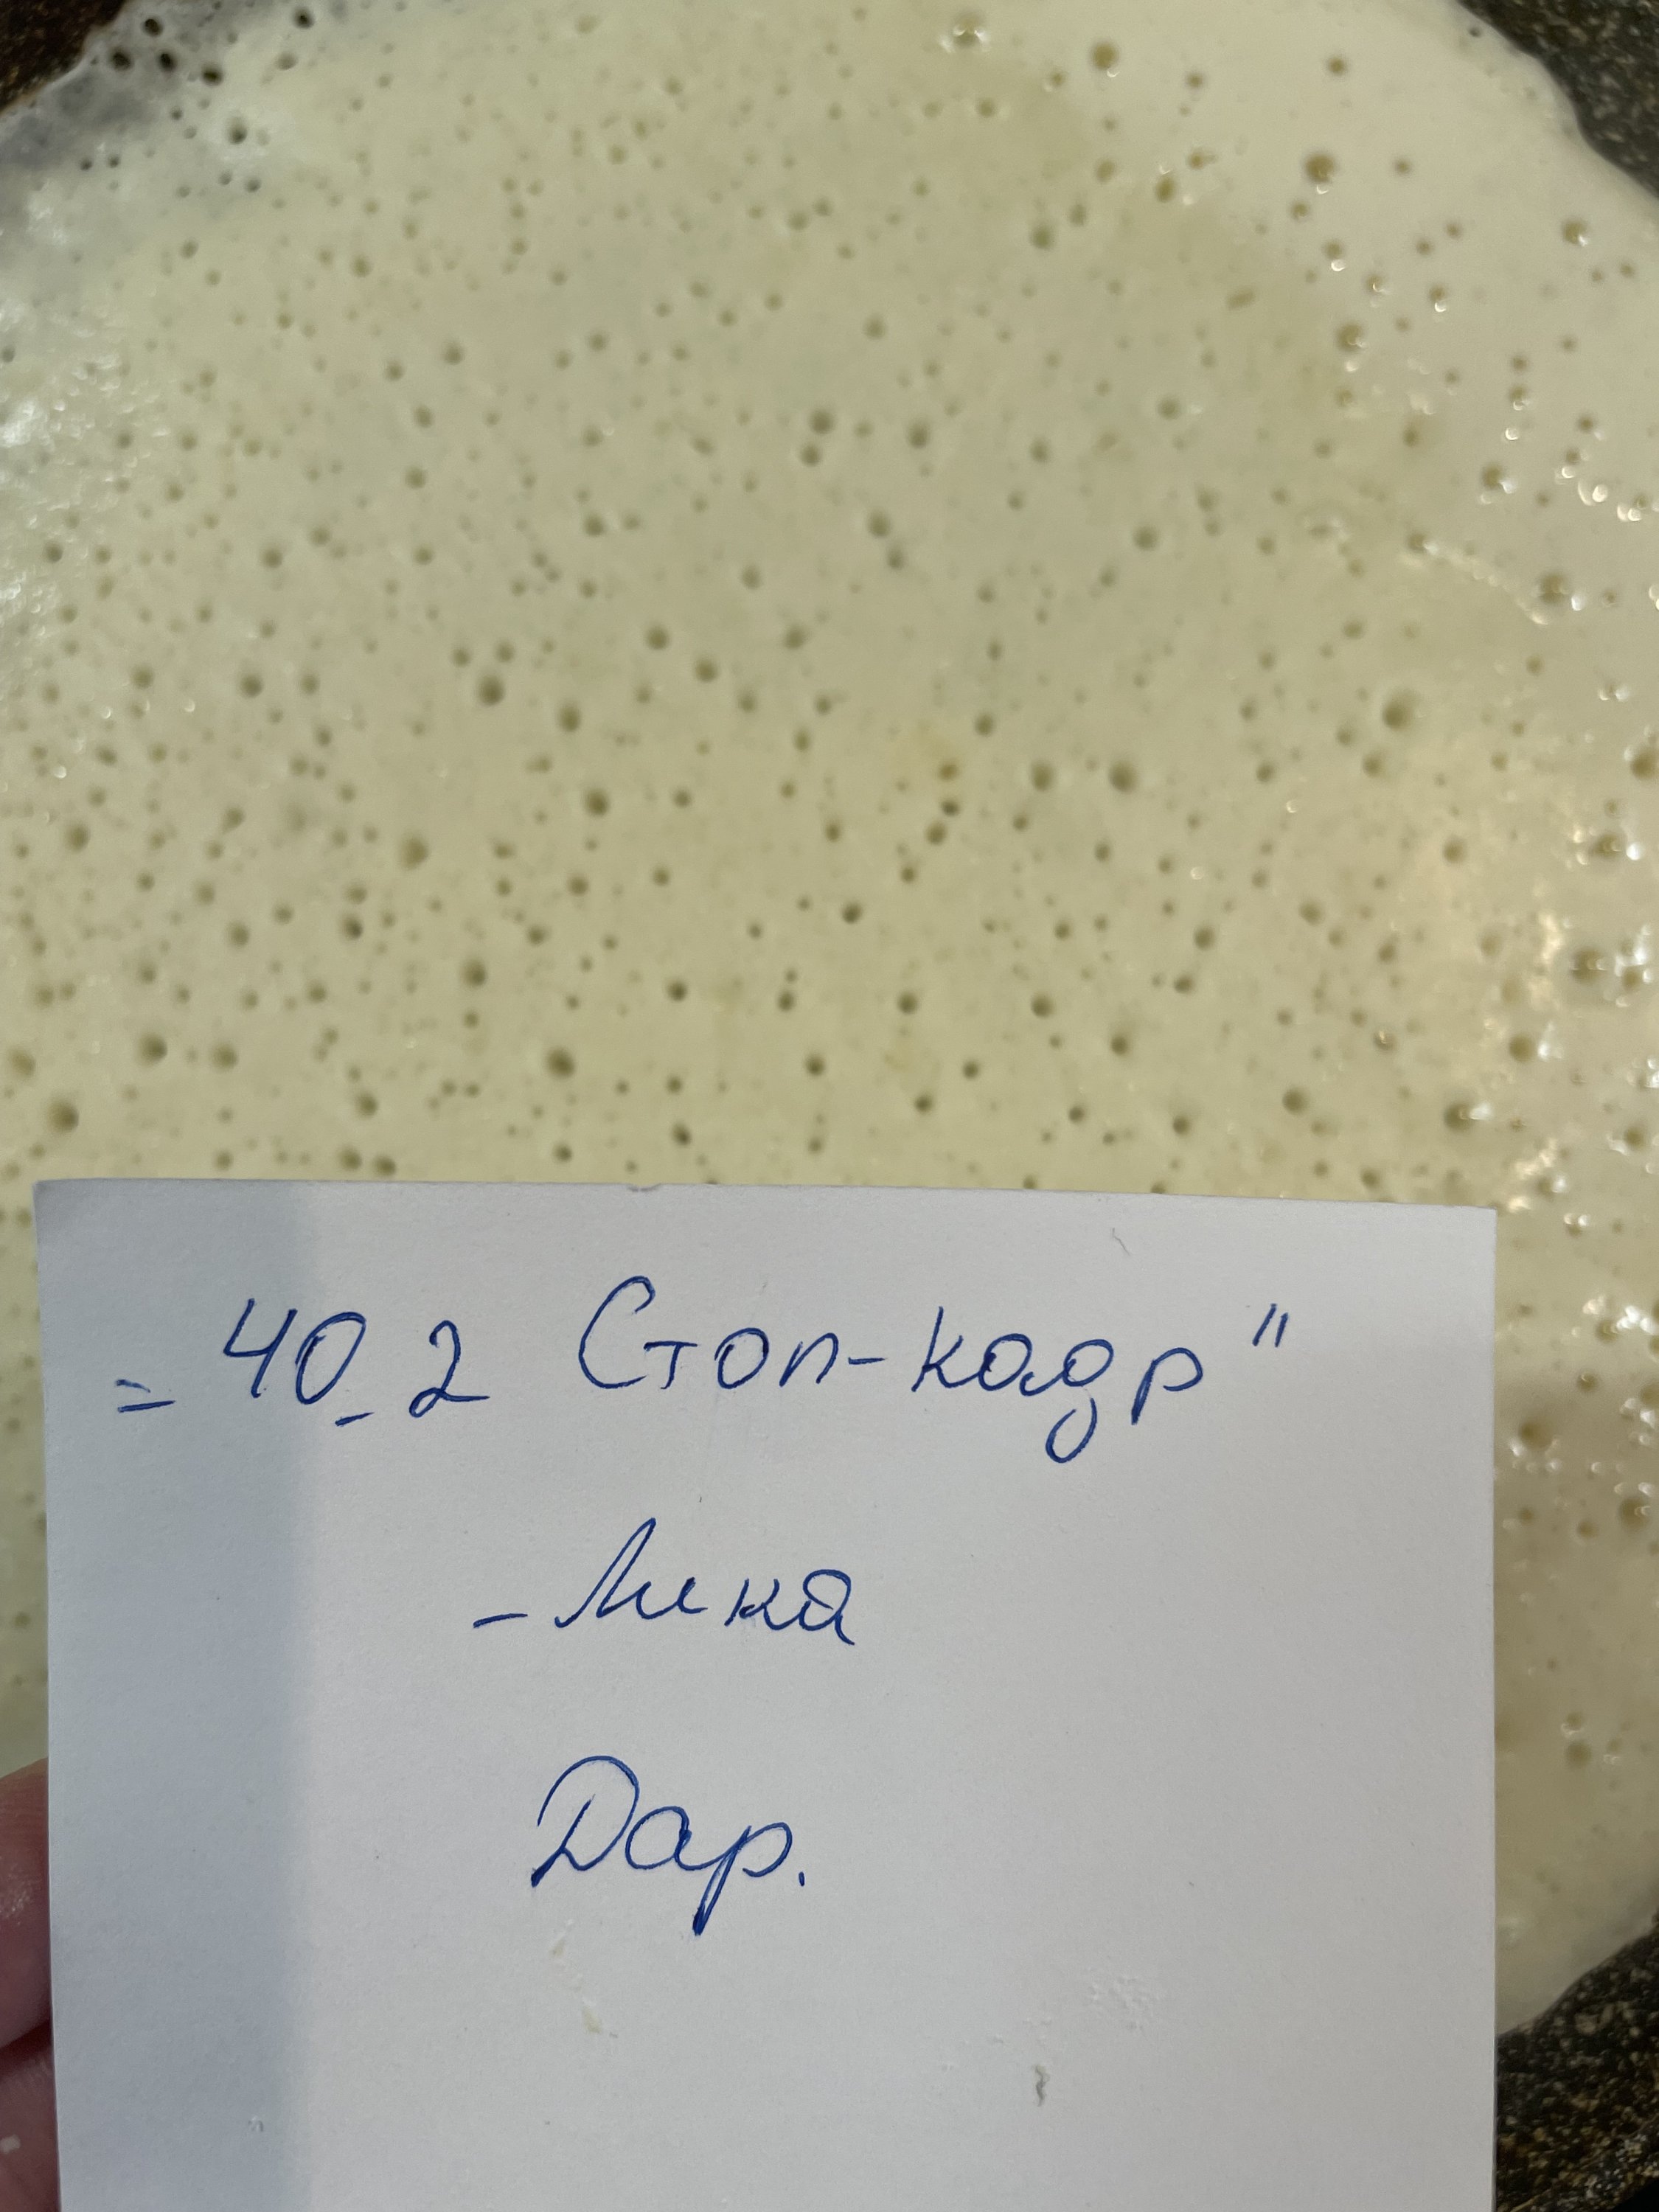 „40_2 Стоп-кадр"
- Лика
Дар.